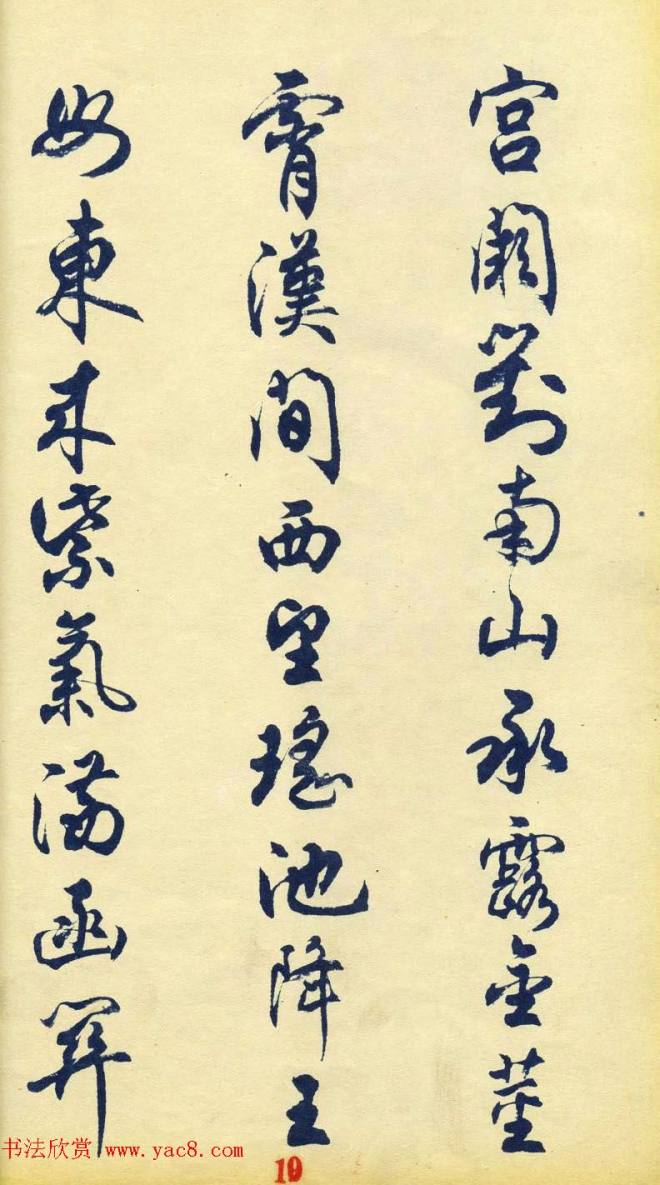 宫阙對南山承露金莖
霄漢間西望瑤池降王
母東来紫氣滿函関
书法欣赏 www.yac8.com
19